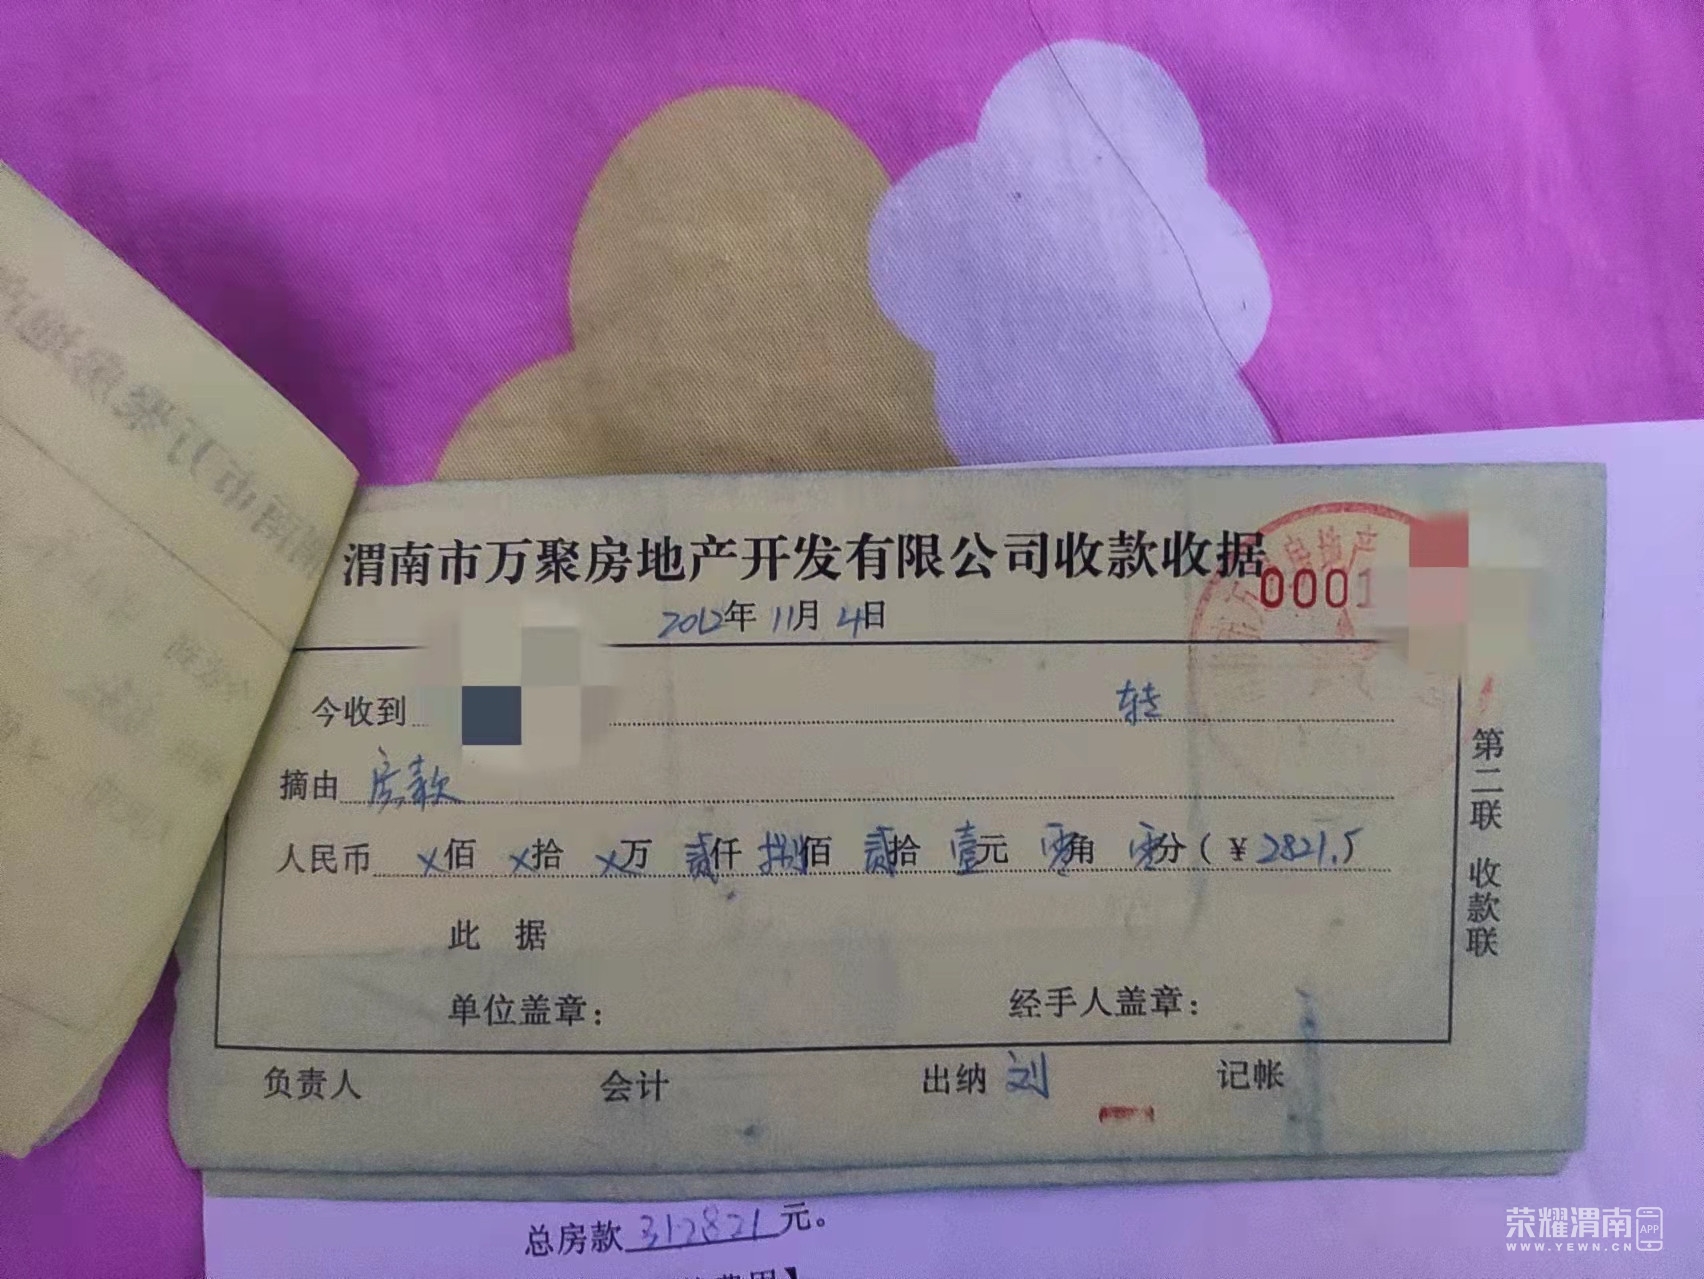 渭南市万聚房地产开发有限公司收款收据
0001
2012年11月4日
今收到 转
摘由 房款
人民币 x佰 x拾 x万 贰仟 捌佰 贰拾 壹元 零角 零分(¥2821.5
此 据
单位盖章: 经手人盖章:
负责人 会计 出纳 刘 记帐
第二联 收款联
房地产
总房款312821元。
荣耀渭南APP
WWW.YEWN.CN